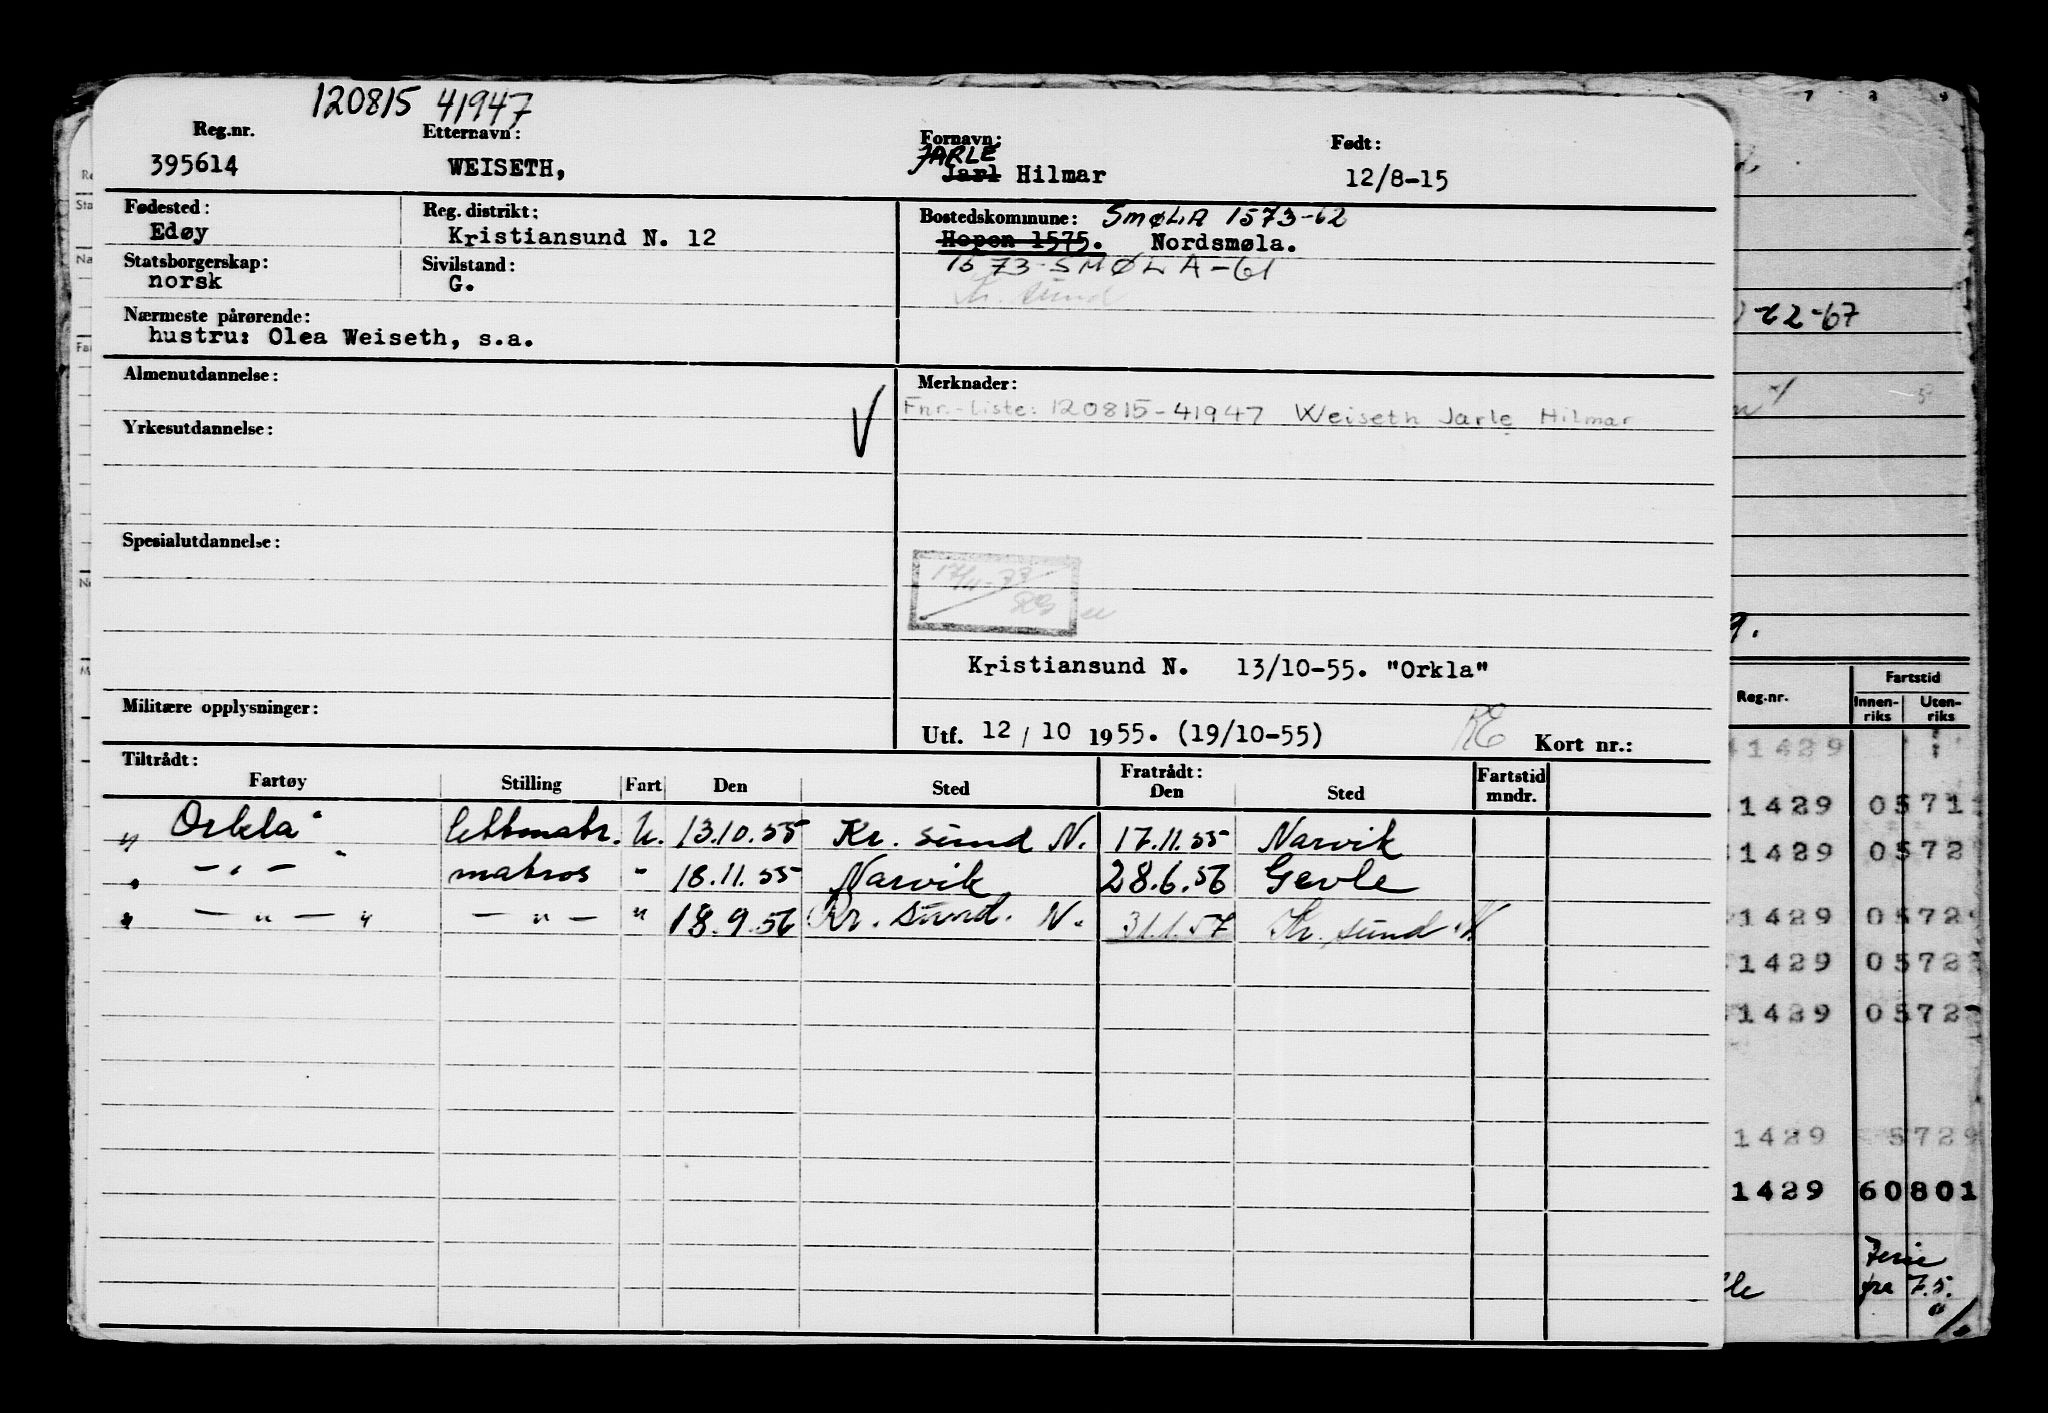 120815 41947
Reg.nr. Etternavn: Fornavn: Født:
JARLE
395614 WEISETH, Jarl Hilmar 12/8-15
Fødested: Reg. distrikt: Bostedskommune: SMØLA 1573-62
Edøy Kristiansund N. 12 Hopen 1575. Nordsmøla.
Statsborgerskap: Sivilstand: 1573 SMØLA-61
norsk G. Kr. sund
Nærmeste pårørende:
hustru: Olea Weiseth, s.a.
Almenutdannelse: Merknader:
Fnr.-liste: 120815-41947 Weiseth Jarle Hilmar
Yrkesutdannelse:
Spesialutdannelse:
17/11-77
Kristiansund N. 13/10-55. "Orkla"
Militære opplysninger:
Utf. 12/10 1955. (19/10-55) Kort nr.:
Tiltrådt: Fratrådt:
Fartøy Stilling Fart Den Sted Den Sted Fartstid mndr.
„Orkla" lettmatr. U. 13.10.55 Kr. sund N. 17.11.55 Narvik
„ — " — " matros " 18.11.55 Narvik 28.6.56 Gevle
„ — " — " — " — " 18.9.56 Kr. sund. N. 31.1.57 Kr. sund N.
-62-67
9.
Reg.nr. Fartstid
Innen-riks Uten-riks
1429
1429 0571
1429 0572
1429 0572
1429 0572
1429 0572
1429 5729
1429 60801
Ferie
fra 7.5.